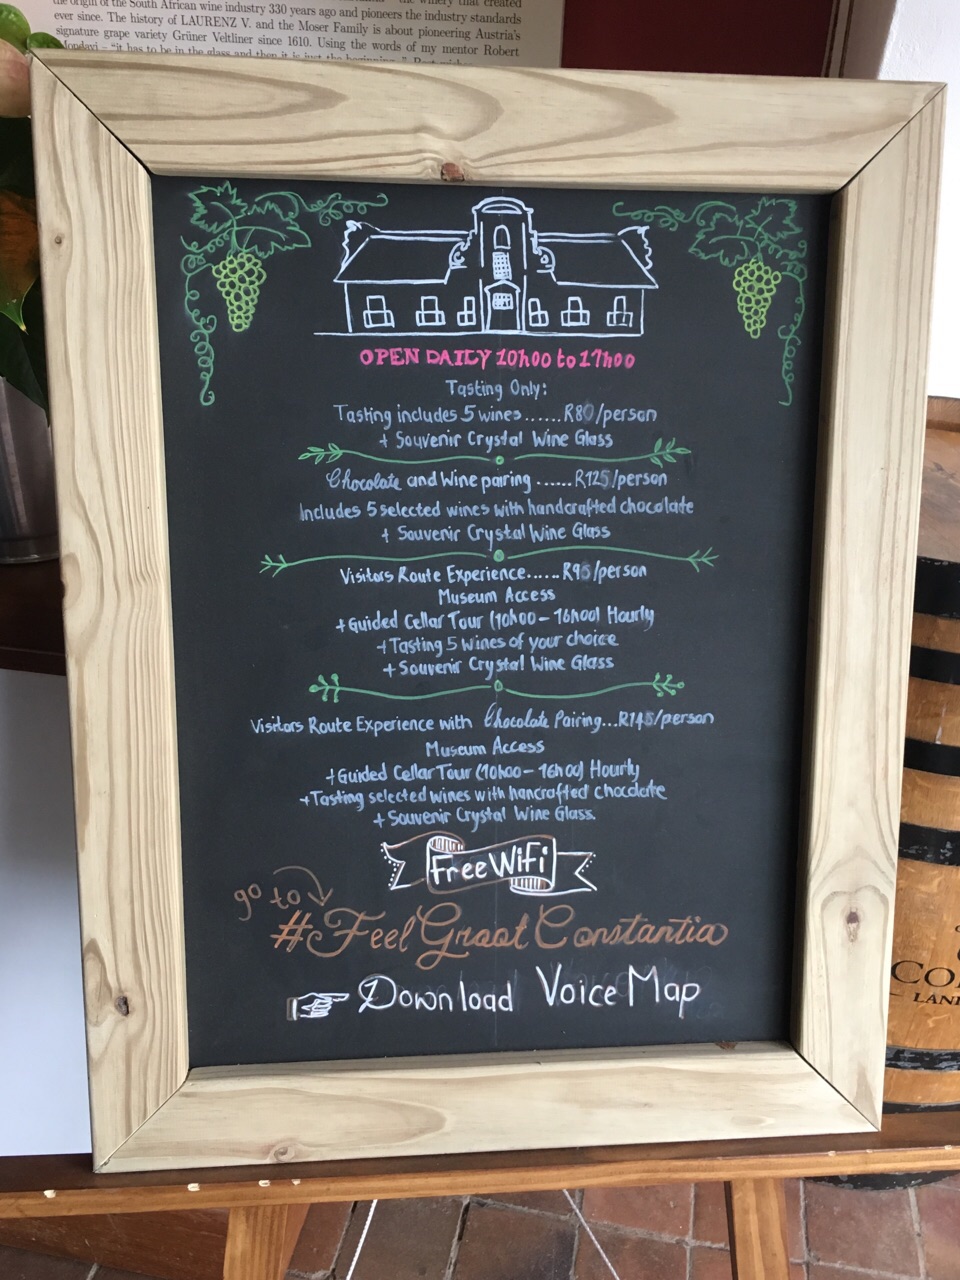 the origin of the South African wine industry 330 years ago and pioneers the industry standards
ever since. The history of LAURENZ V. and the Moser Family is about pioneering Austria's
signature grape variety Grüner Veltliner since 1610. Using the words of my mentor Robert
"it has to be in the glass and then it is just the beginning."
OPEN DAILY 10h00 to 17h00
Tasting Only:
Tasting includes 5 wines......R80/person
+ Souvenir Crystal Wine Glass
Chocolate and Wine pairing ......R125/person
Includes 5 selected wines with handcrafted chocolate
+ Souvenir Crystal Wine Glass
Visitors Route Experience......R95/person
Museum Access
+Guided Cellar Tour (10h00 - 16h00) Hourly
+Tasting 5 wines of your choice
+Souvenir Crystal Wine Glass
Visitors Route Experience with Chocolate Pairing...R145/person
Museum Access
+Guided Cellar Tour (10h00 - 16h00) Hourly
+Tasting selected wines with hancrafted chocolate
+ Souvenir Crystal Wine Glass.
Free WiFi
go to
#FeelGrootConstantia
Download Voice Map